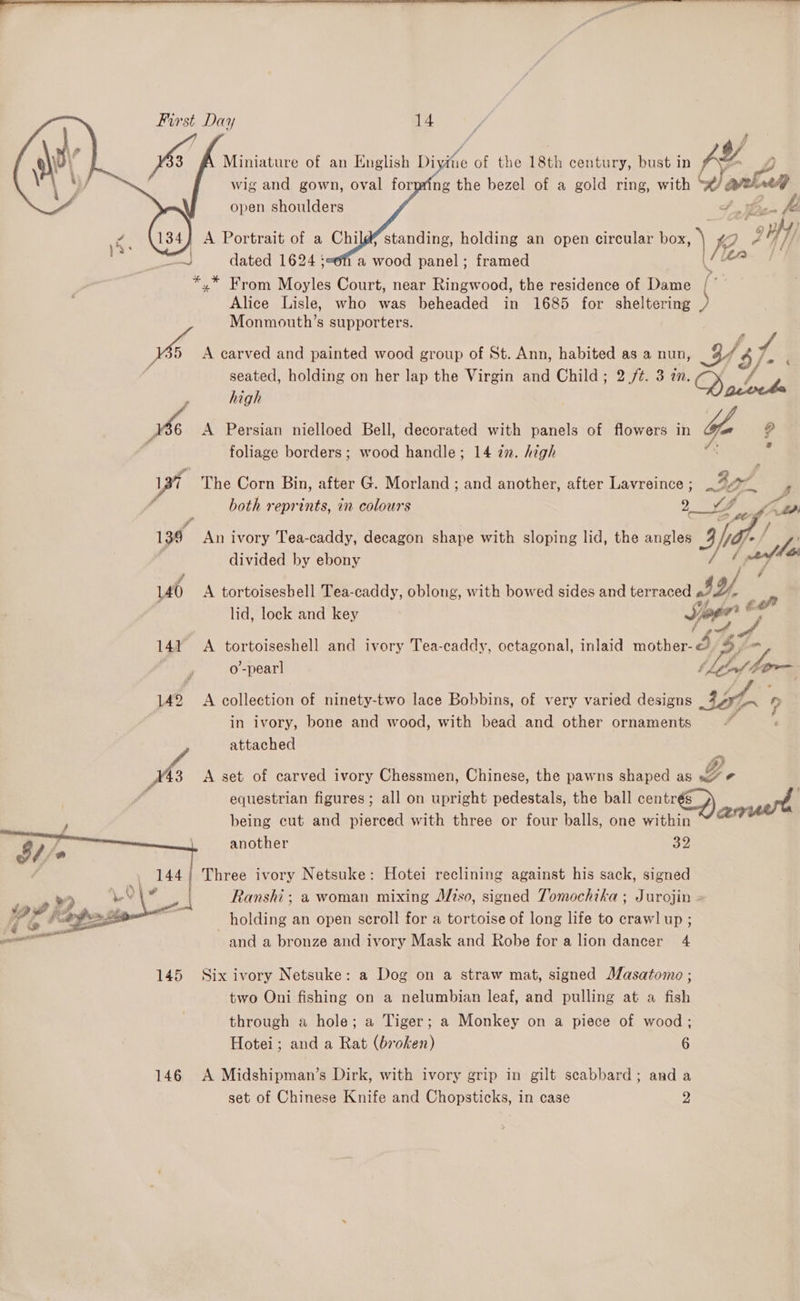 First Day 14
133 A Miniature of an English Divine of the 18th century, bust in
wig and gown, oval forming the bezel of a gold ring, with
open shoulders
134 A Portrait of a Child, standing, holding an open circular box,
dated 1624; on a wood panel; framed
*⁎* From Moyles Court, near Ringwood, the residence of Dame
Alice Lisle, who was beheaded in 1685 for sheltering
Monmouth's supporters.
135 A carved and painted wood group of St. Ann, habited as a nun,
seated, holding on her lap the Virgin and Child; 2 ft. 3 in.
high
136 A Persian nielloed Bell, decorated with panels of flowers in
foliage borders; wood handle; 14 in. high
137 The Corn Bin, after G. Morland; and another, after Lavreince;
both reprints, in colours 2
139 An ivory Tea-caddy, decagon shape with sloping lid, the angles
divided by ebony
140 A tortoiseshell Tea-caddy, oblong, with bowed sides and terraced
lid, lock and key
141 A tortoiseshell and ivory Tea-caddy, octagonal, inlaid mother-
o'-pearl
142 A collection of ninety-two lace Bobbins, of very varied designs
in ivory, bone and wood, with bead and other ornaments
attached
143 A set of carved ivory Chessmen, Chinese, the pawns shaped as
equestrian figures; all on upright pedestals, the ball centrés
being cut and pierced with three or four balls, one within
another 32
144 Three ivory Netsuke: Hotei reclining against his sack, signed
Ranshi; a woman mixing Miso, signed Tomochika; Jurojin
holding an open scroll for a tortoise of long life to crawl up;
and a bronze and ivory Mask and Robe for a lion dancer 4
145 Six ivory Netsuke: a Dog on a straw mat, signed Masatomo;
two Oni fishing on a nelumbian leaf, and pulling at a fish
through a hole; a Tiger; a Monkey on a piece of wood;
Hotei; and a Rat (broken) 6
146 A Midshipman's Dirk, with ivory grip in gilt scabbard; and a
set of Chinese Knife and Chopsticks, in case 2